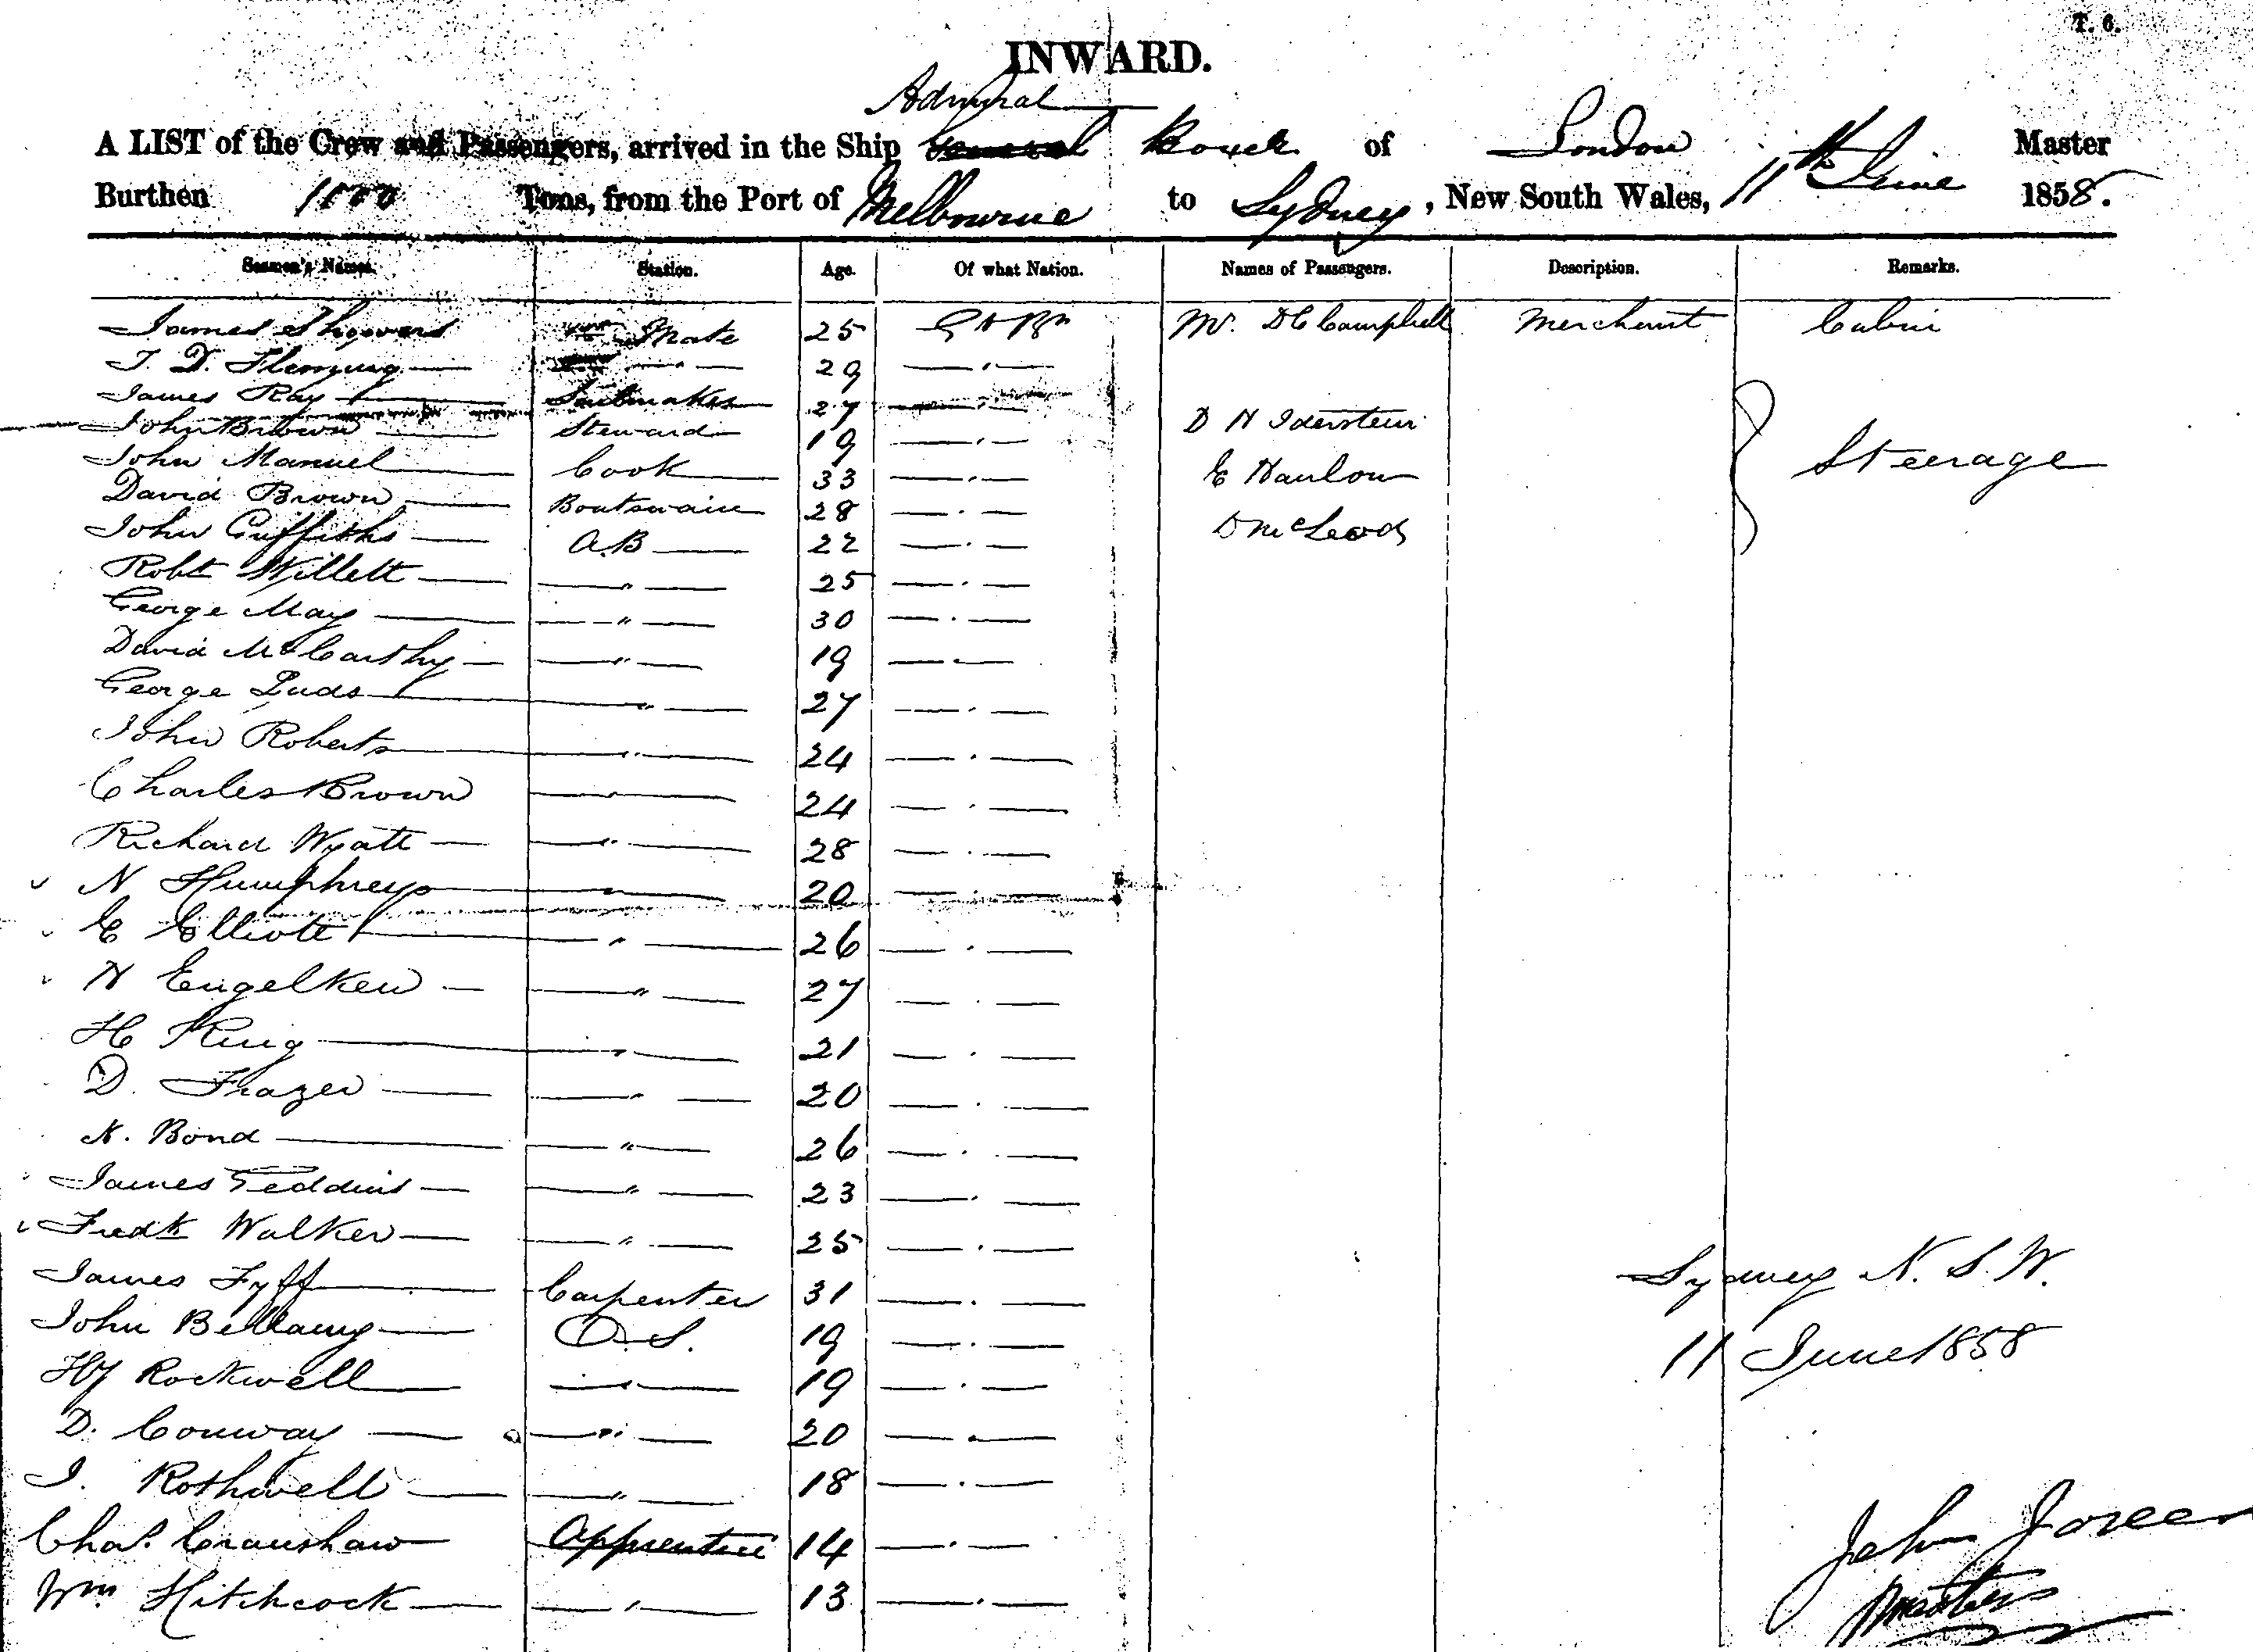 T. 6.
INWARD.
Admiral
A LIST of the Crew and Passengers, arrived in the Ship General Boxer of London Master
Burthen 1500 Tons, from the Port of Melbourne to Sydney, New South Wales, 11th June 1858.
Seamen's Names. Station. Age. Of what Nation. Names of Passengers. Description. Remarks.
James Mate 25 Gt Bn Mr. D C Campbell Merchant Cabin
T. D. Fleming 29
James Ray Sailmaker 27
John Brown Steward 19 D H Iderstein
John Manuel Cook 33 E Hanlon Steerage
David Brown Boatswain 28
John Griffiths A.B 22 D McLeod
Robt Willett " 25
George May " 30
David McCarthy " 19
George " 27
John Roberts " 24
Charles Brown " 24
Richard Wyatt " 28
N Humphreys " 20
E Elliott " 26
H Engelken " 27
H King " 21
D. Frazer " 20
N. Bond " 26
James Feddins " 23
Fredk Walker " 25
James Fyff Carpenter 31 Sydney N. S. W.
John Bellamy O.S. 19 11 June 1858
Hy Rockwell " 19
D. Conway " 20
J. Rothwell " 18
Chas. Craushaw Apprentice 14 John
Wm. Hitchcock " 13 Master